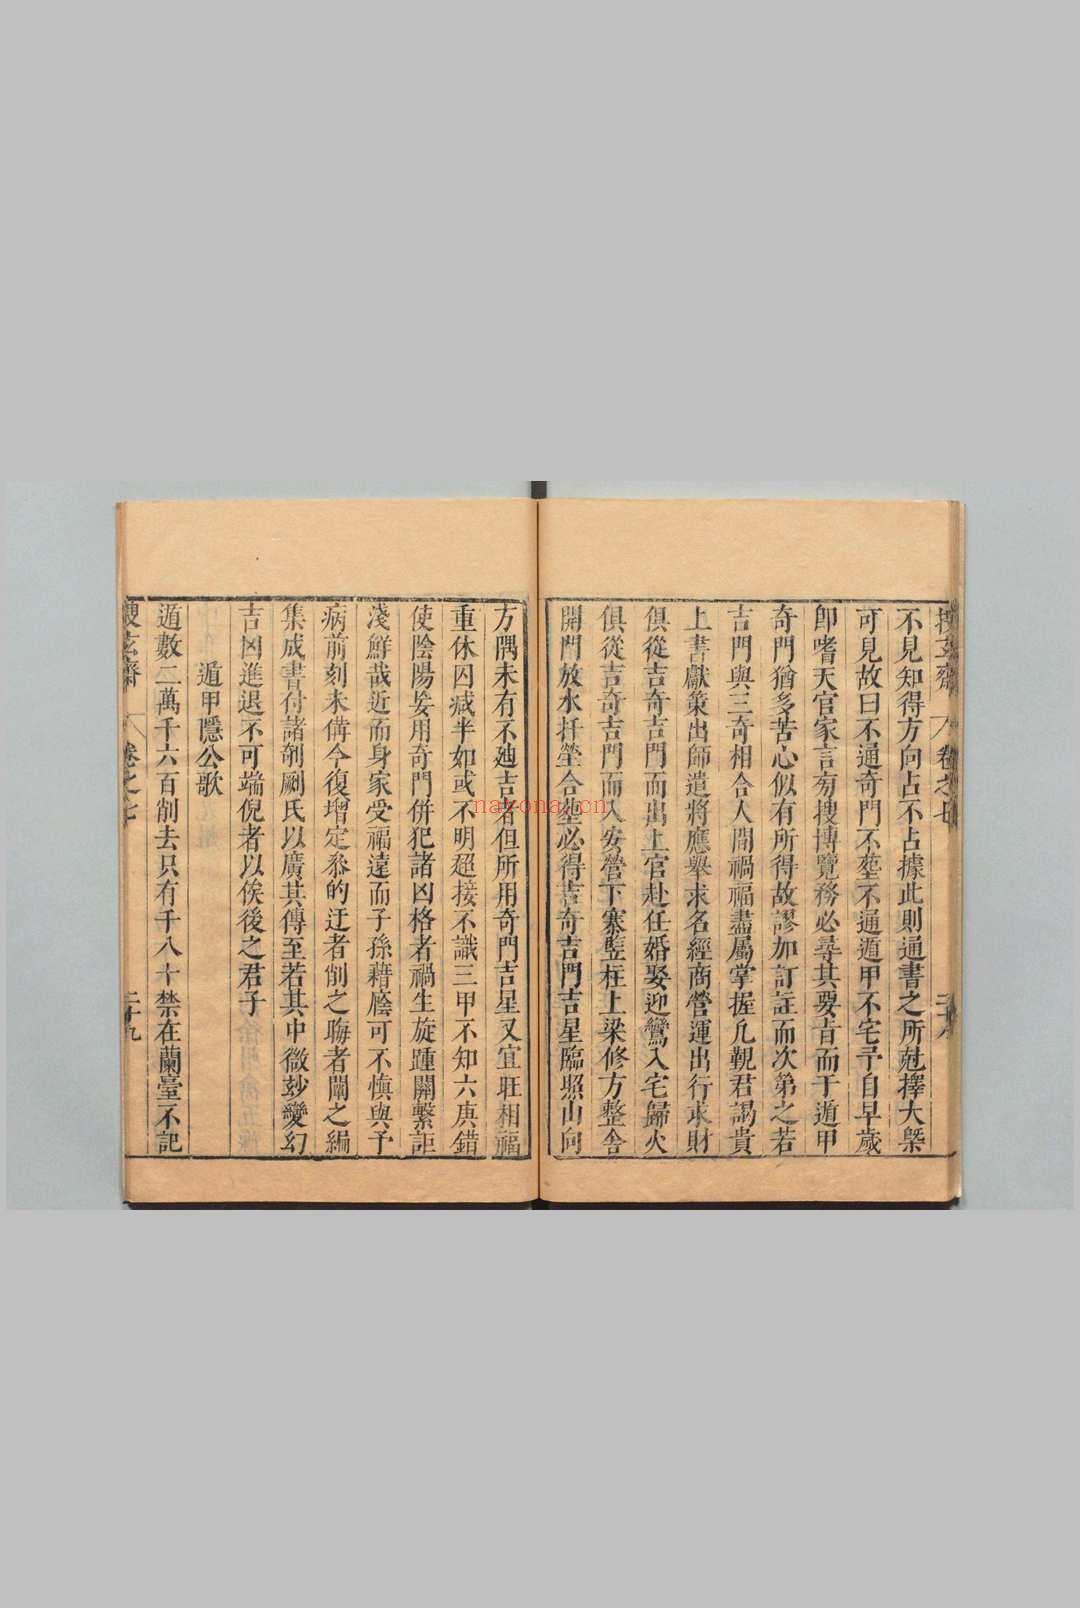 搜玄齋 卷之七 二十八
不見知得方向占不占據此則通書之所尅擇大槩
可見故曰不通奇門不塟不通遁甲不宅予自早歲
卽嗜天官家言旁搜博覽務必尋其要旨而于遁甲
奇門猶多苦心似有所得故謬加訂註而次第之若
吉門與三奇相合人間禍福盡屬掌握凡覲君謁貴
上書獻策出師遣將應舉求名經商營運出行求財
俱從吉奇吉門而出上官赴任婚娶迎鸞入宅歸火
俱從吉奇吉門而入安營下寨竪柱上梁修方整舍
開門放水扦塋合塟必得吉奇吉門吉星臨照山向
方隅未有不廸吉者但所用奇門吉星又宜旺相福
重休囚减半如或不明超接不識三甲不知六庚錯
使陰陽妄用奇門併犯諸凶格者禍生旋踵關繫詎
淺鮮哉近而身家受福遠而子孫藉廕可不慎與予
病前刻未備今復增定叅的迂者削之晦者闡之編
集成書付諸剞劂氏以廣其傳至若其中微玅變幻
吉凶進退不可端倪者以俟後之君子
遁甲隱公歌
遁數二萬千六百削去只有千八十禁在蘭臺不記
搜玄齋 卷之七 二十九
nayona.cn